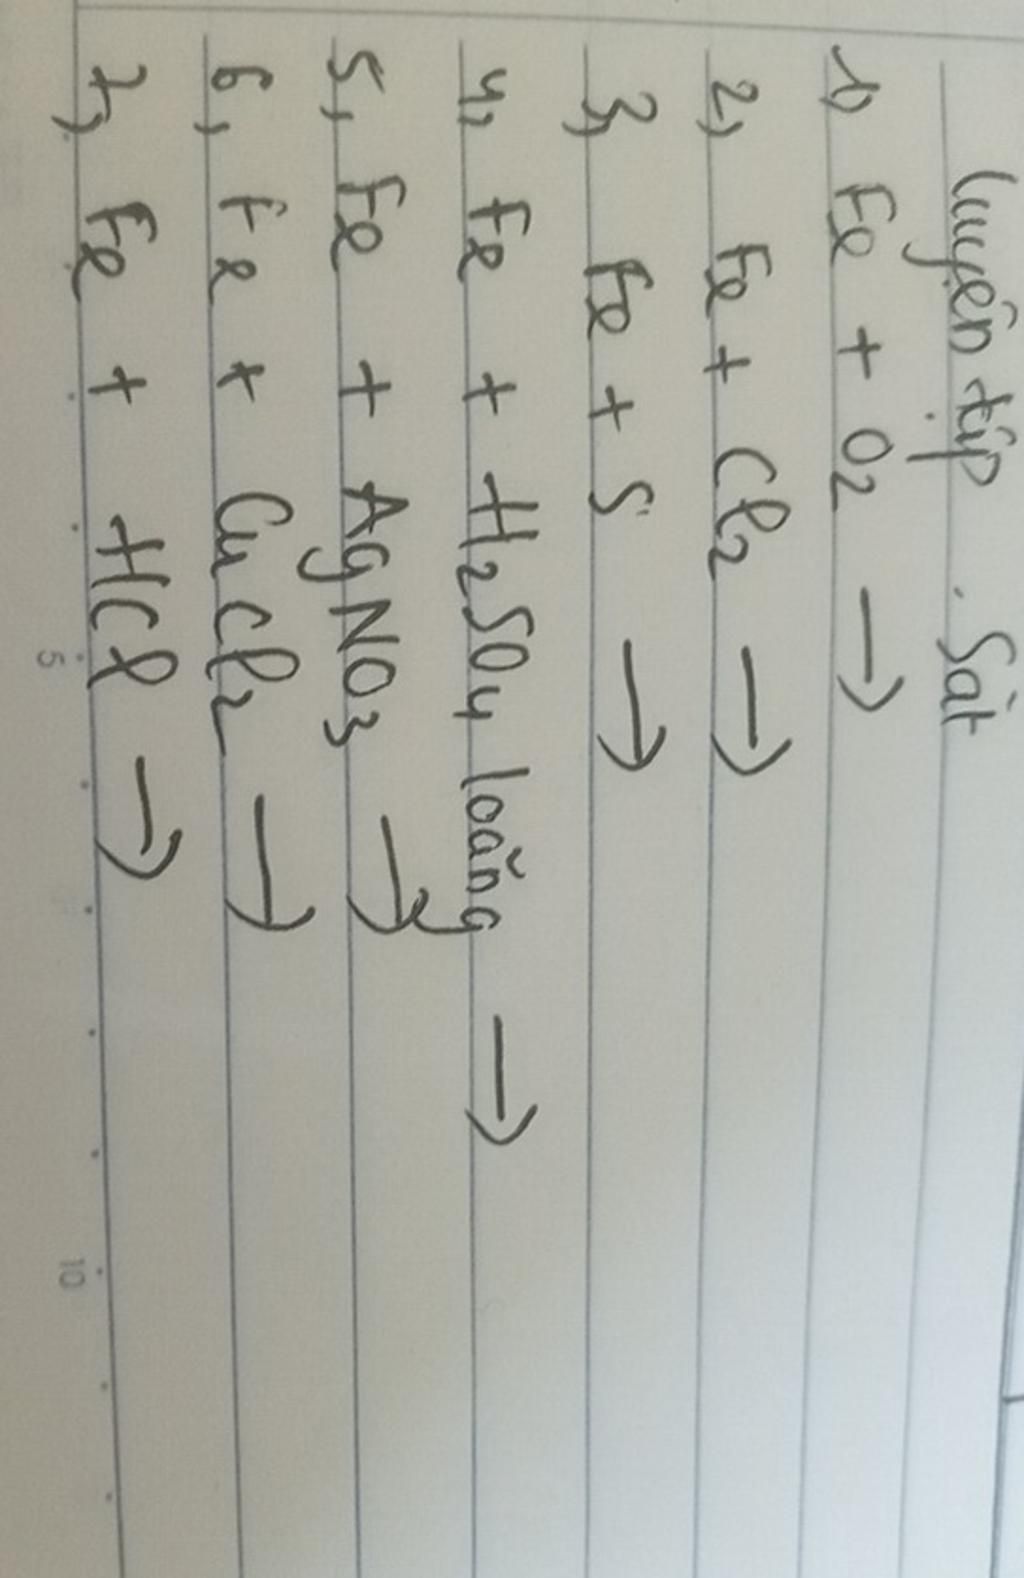 Luyện tập. Sắt
1) Fe + O2 →
2, Fe + Cl2 →
3, Fe + S →
4, Fe + H2SO4 loãng →
5, Fe + AgNO3 →
6, Fe + CuCl2 →
7, Fe + HCl →
5
10